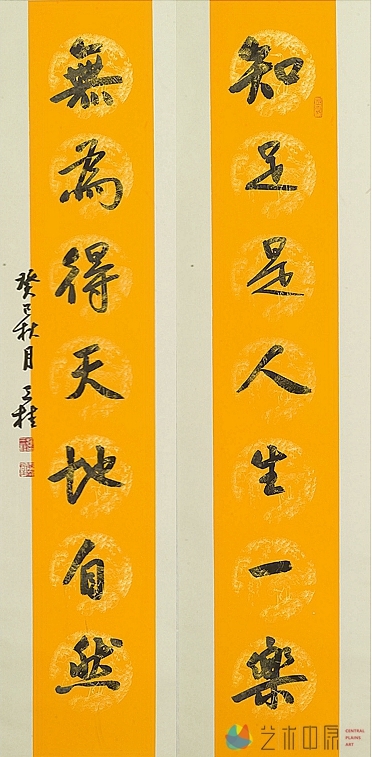 知足是人生一樂
無為得天地自然
癸巳秋月
艺术中原
CENTRAL
PLAINS
ART